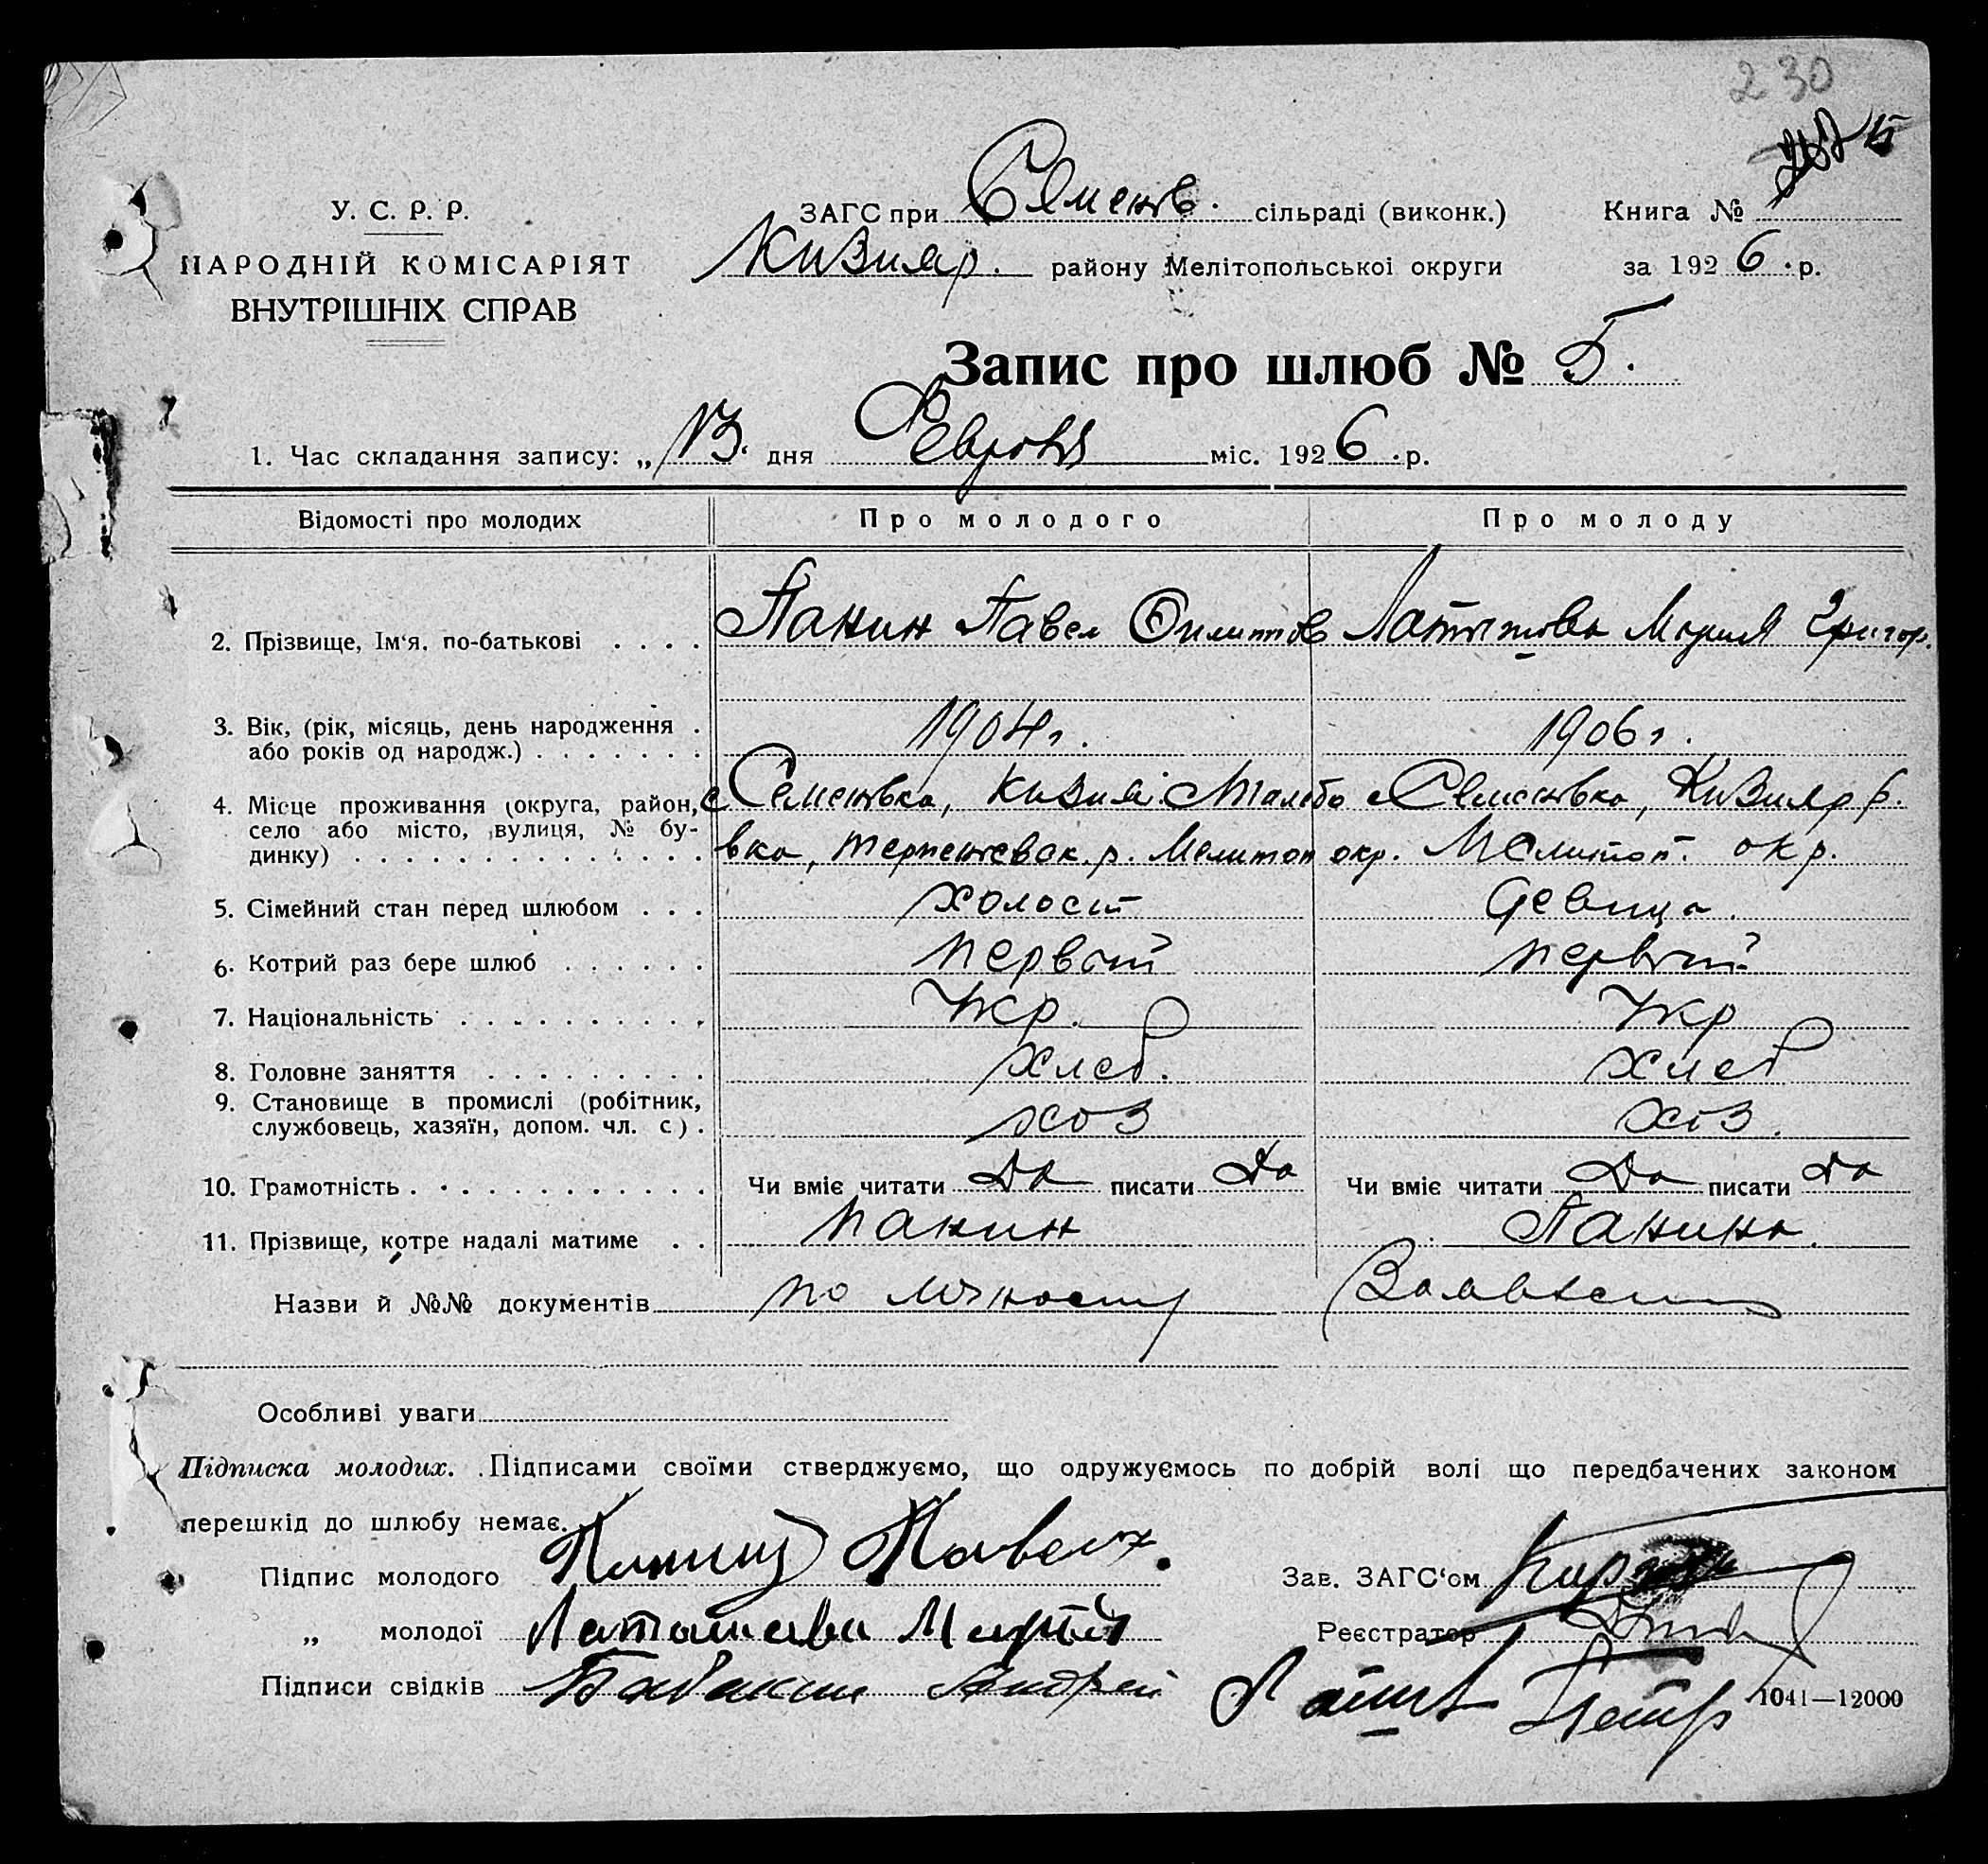 230
У. С. Р. Р.
НАРОДНІЙ КОМІСАРІЯТ
ВНУТРІШНІХ СПРАВ
ЗАГС при Семенов. сільраді (виконк.)
Кизияр. району Мелітопольської округи
Книга №
за 1926 р.
Запис про шлюб № 5.
1. Час складання запису: „13. дня Февраля міс. 1926 р.
Відомості про молодих Про молодого Про молоду
2. Прізвище, Ім‘я, по-батькові . . . . Панин Павел Филиппов Мария Григор.
3. Вік, (рік, місяць, день народження .
або років од народж.) . . . . . . . 1904 г. 1906 г.
4. Місце проживання (округа, район, с Семеновка, с Семеновка, Кизияр р.
село або місто, вулиця, № бу-
динку) . . . . . . . . . . . . . . вка, р. Мелитоп окр. Мелитоп. окр.
5. Сімейний стан перед шлюбом . . . холост девица.
6. Котрий раз бере шлюб . . . . . . первый первый
7. Національність . . . . . . . . . . Укр. Укр
8. Головне заняття . . . . . . . . . хлеб. хлеб
9. Становище в промислі (робітник,
службовець, хазяїн, допом. чл. с) . хоз хоз.
10. Грамотність . . . . . . . . . . . . Чи вміє читати да писати да Чи вміє читати да писати да
11. Прізвище, котре надалі матиме . . Панин Панина.
Назви й №№ документів по личности
Особливі уваги
Підписка молодих. Підписами своїми стверджуємо, що одружуємось по добрій волі що передбачених законом
перешкід до шлюбу немає.
Підпис молодого Панин Павел.
Зав. ЗАГС‘ом
„ молодої Мария
Реєстратор
Підписи свідків Андрей Петр
1041—12000